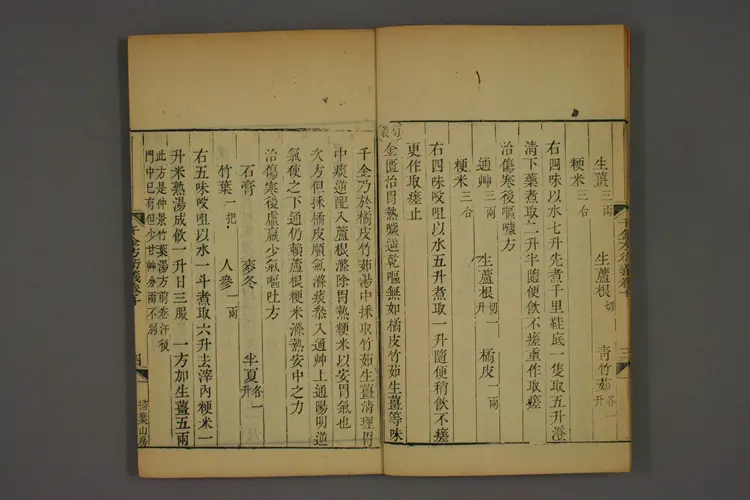 生薑三兩 生蘆根切一升 青竹茹各一升
粳米三合
右四味以水七升先煮千里鞋底一隻取五升澄
清下藥煮取二升半隨便飲不瘥重作取瘥
治傷寒後嘔噦方
通艸三兩 生蘆根切一升 橘皮一兩
粳米三合
右四味㕮咀以水五升煮取二升隨便稍飲不瘥
更作取瘥止
金匱治胃熱噦逆乾嘔無如橘皮竹茹生薑等味
千金乃於橘皮竹茹湯中採取竹茹生薑清理胃
中痰逆配入蘆根滌除胃熱粳米以安胃氣也
次方但採橘皮順氣滌痰叅入通艸上通陽明逆
氣使之下通仍賴蘆根粳米滌熱安中之力
治傷寒後虛羸少氣嘔吐方
石膏 麥冬 半夏各一升
竹葉一把 人參一兩
右五味㕮咀以水一斗煮取六升去滓內粳米一
升米熟湯成飲一升日三服 一方加生薑五兩
此方是仲景竹葉湯方前卷汗後
門中已有但少甘艸分兩不別
千金方衍義卷十
四
掃葉山房